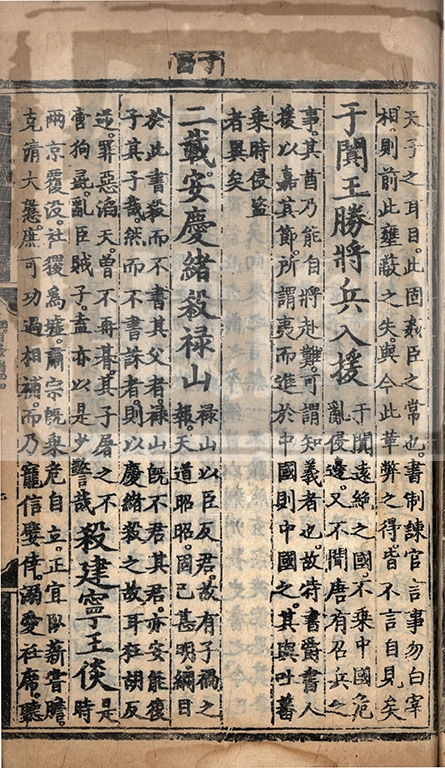 天子之耳目。此固姦臣之常也。書制諫官言事勿白宰
相。則前此壅蔽之失。與今此革弊之得。皆不言自見矣
于闐王勝將兵入援
于闐遠絶之國。不乘中國危
亂侵邊。又不聞唐有召兵之
事。其酋乃能自將赴難。可謂知義者也。故特書爵書人
援以嘉其節。所謂夷而進於中國則中國之。其與吐蕃
乘時侵盗
者異矣
二載。安慶緒殺禄山
禄山以臣反君。故有子禍之
報。天道昭昭。固已甚明。綱目
於此書殺而不書其父者。禄山既不君其君。亦安能復
子其子哉。然而不書誅者。則以慶緒殺之故耳。狂胡反
逆。罪惡滔天。曾不再朞。其子屠之不
啻狗彘。亂臣賊子。盍亦以是少警哉
殺建寧王倓
是
時
兩京覆没。社稷爲墟。肅宗既乘危自立。正宜卧薪嘗膽。
克清大憝。庶可功過相補。而乃寵信嬖倖。溺愛衽席。聽